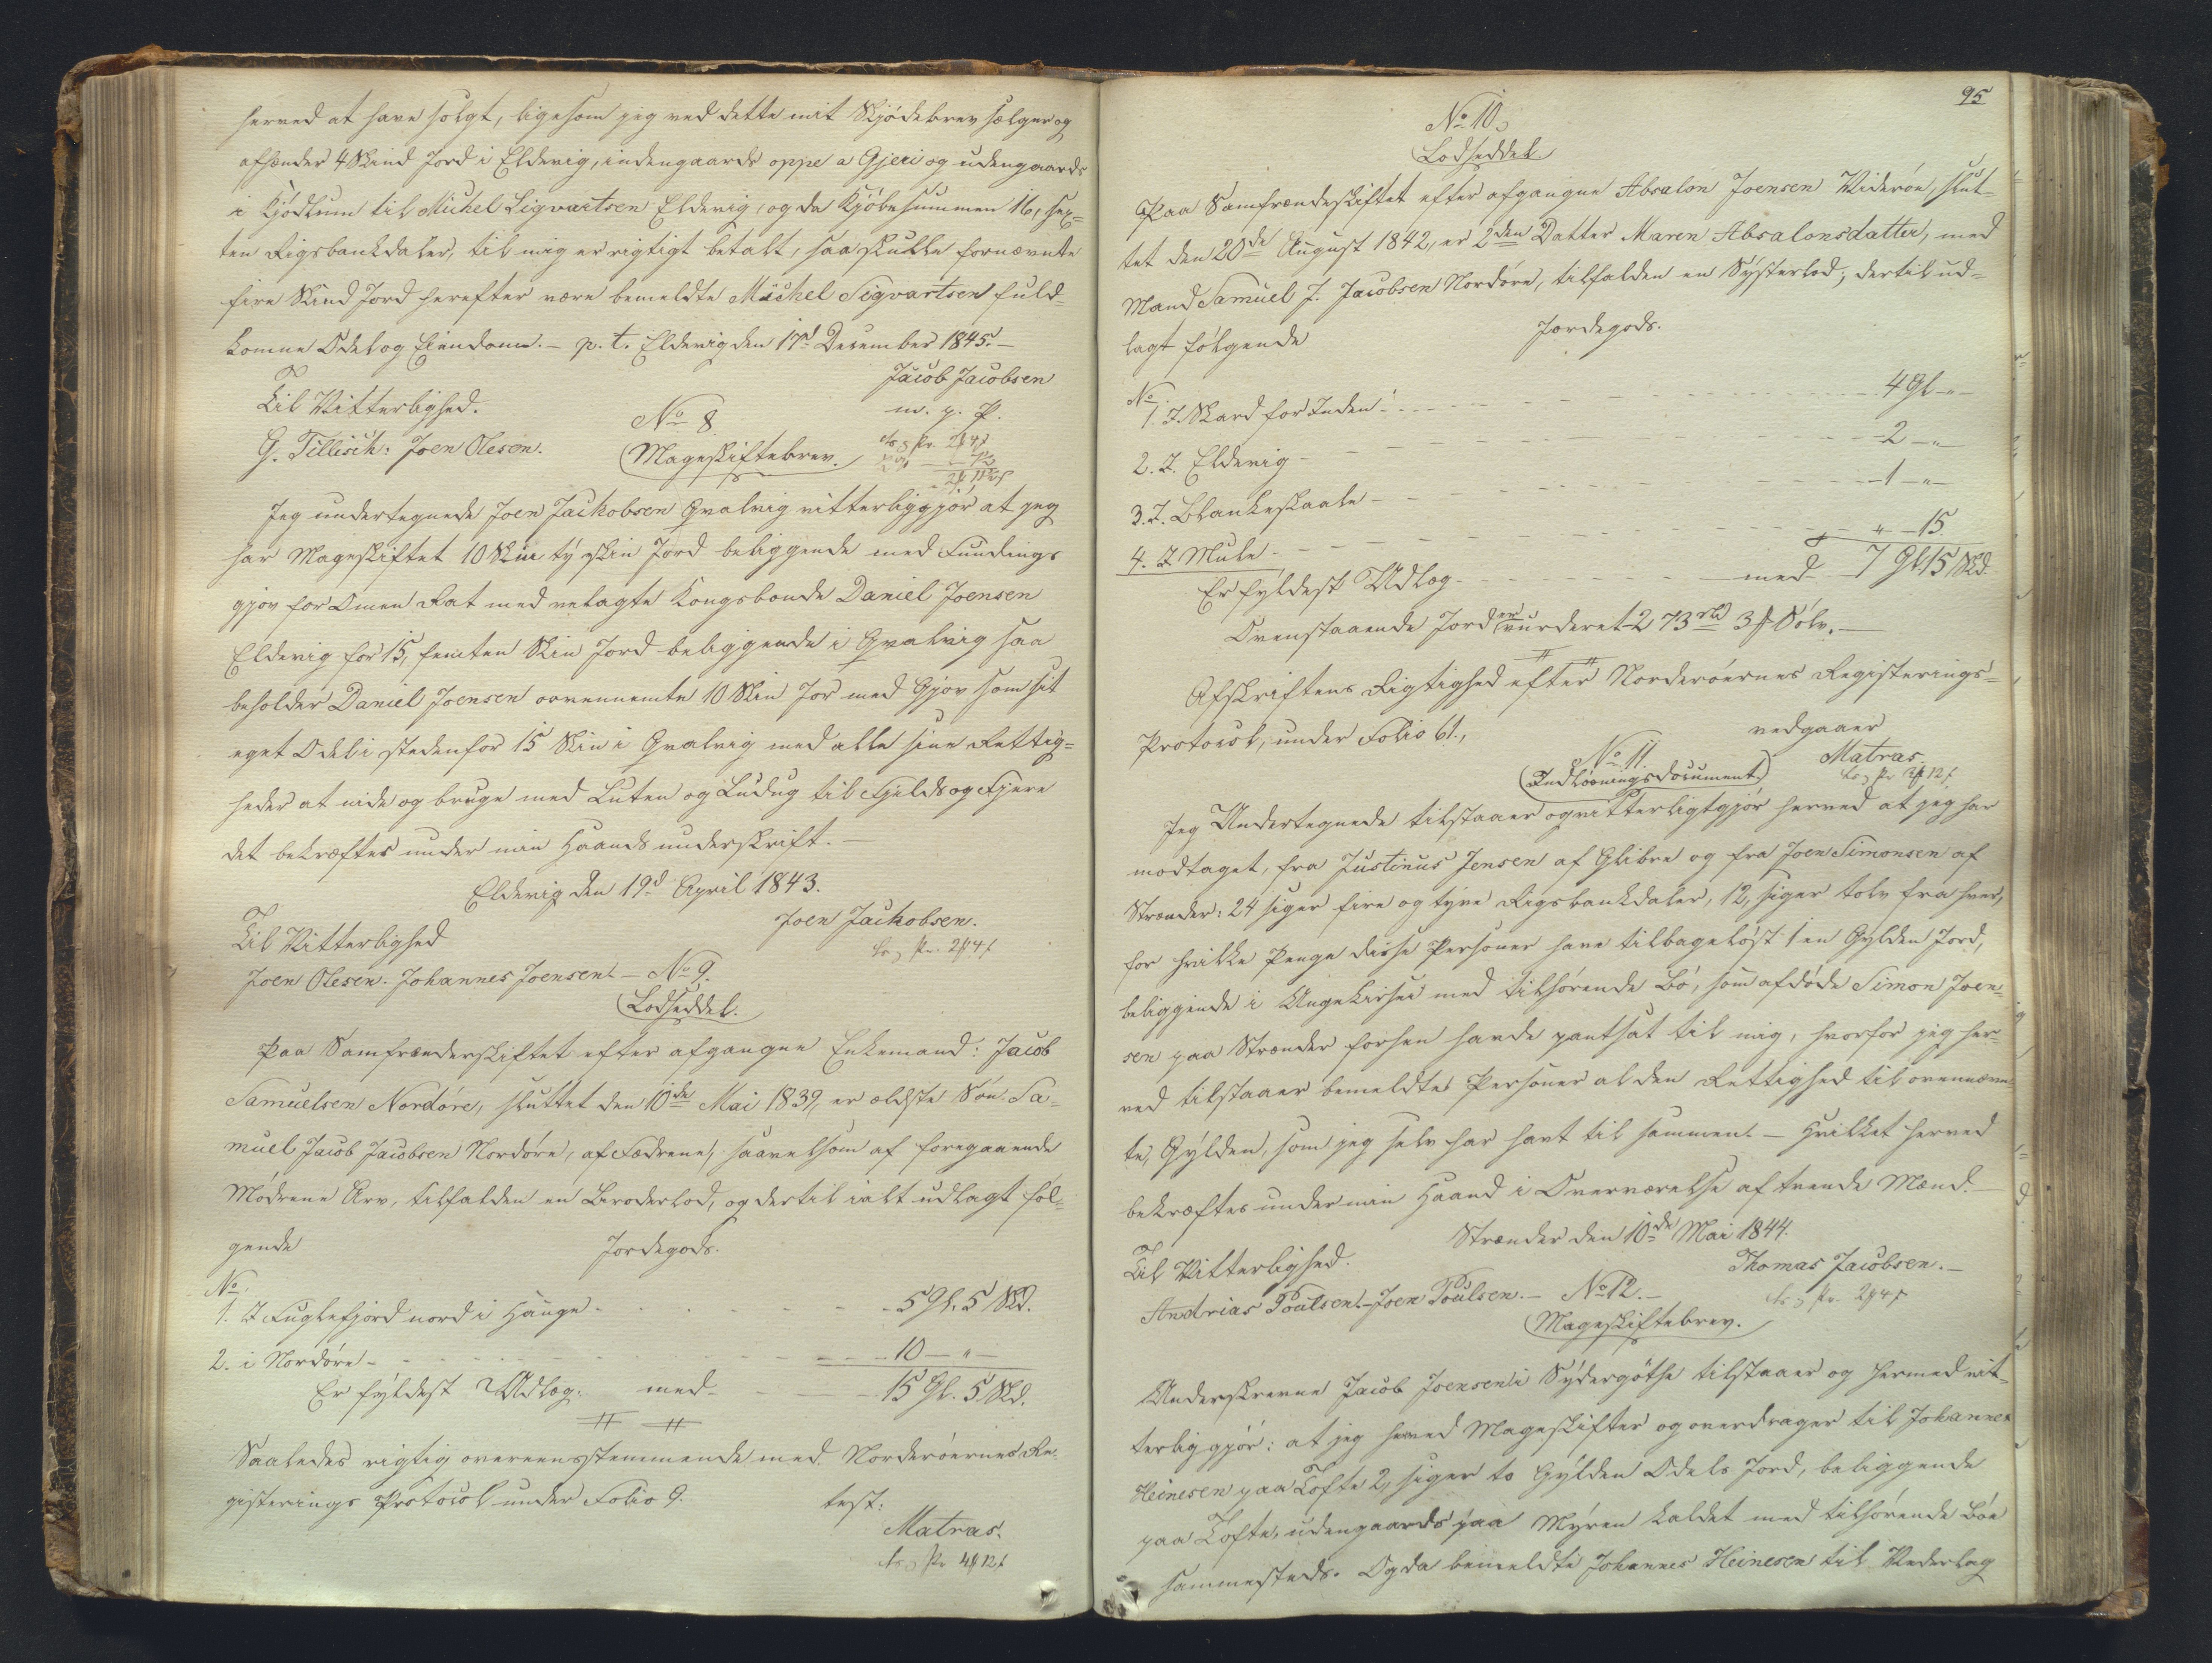 herved at have solgt, ligesom jeg ved dette mit Skjödebrev sælger og
afhænder 4 Skind Jord i Eldevig, indengaards oppe a Gjeri og udengaards
i Kjödlum til Michel Sigvartsen Eldevig, og da Kjöbesummen 16, sex-
ten Rigsbankdaler, til mig er rigtigt betalt, saa skulle fornævnte
fire Skind Jord herefter være bemeldte Michel Sigvartsen fuld-
komne Odel og Eiendom. — p. t. Eldevig den 17d December 1845. —
Jacob Jacobsen
Til Vitterlighed.
m. p. P.
G. Tillisch: Joen Olesen.
No 8.
Mageskiftebrev.
Jeg undertegnede Joen Jackobsen Qvalvig vitterliggjör at jeg
har Mageskiftet 10 Skin ty skin Jord beliggende med Fundings
gjov for Omen Rat med velagte Kongsbonde Daniel Joensen
Eldevig for 15, femten Skin Jord beliggende i Qvalvig saa
beholder Daniel Joensen ovennemte 10 Skin Jor med Gjov som sit
eget Odel i stedenfor 15 Skin i Qvalvig med alle sine Rettig-
heder at nide og bruge med Luten og Ludug til Fjelds og Fjere
det bekræftes under min Haands underskrift. —
Eldevig den 19d April 1843.
Til Vitterlighed
Joen Jackobsen.
Joen Olesen. Johannes Joensen. — No 9.
Lodseddel.
Paa Samfrænderskiftet efter afgangne Enkemand: Jacob
Samuelsen Nordöre, sluttet den 10de Mai 1839, er ældste Sön Sa-
muel Jacob Jacobsen Nordöre, af Fædrene, saavelsom af foregaaende
Mödrene Arv, tilfalden en Broderlod, og dertil ialt udlagt föl-
gende
Jordegods.
No.
1. I Fuglefjord nord i Hauge - 5 Gl. 5 Skd.
2. i Nordöre - 10 — " —
Er fyldest Udlæg: med - 15 Gl. 5 Skd.
Saaledes rigtig overeensstemmende med Norderöernes Re-
gisterings Protocol under Folio 9.
test:
Matras.
95
No 10.
Lodseddel.
Paa Samfrændeskiftet efter afgangne Absalon Joensen Videröe, slut-
tet den 20de August 1842, er 2den Datter Maren Absalonsdatter, med
Mand Samuel J. Jacobsen Nordöre, tilfalden en Systerlod; dertil ud-
lagt fölgende
Jordegods.
No.
1. I. Skard for Inden - 4 Gl — " —
2. I. Eldevig - 2 — "
3. I. Blankeskaale - 1 — " —
4. I Mule - " — 15.
Er fyldest Udlæg - med - 7 Gl 15 Skd.
Ovenstaaende Jord er vurderet 273 rbd 3 ß Sölv. —
Afskriftens Rigtighed efter Norderöernes Registerings-
Protocol, under Folio 61.,
vedgaaer
Matras.
No 11.
Indlösningsdocument.
Jeg Undertegnede tilstaaer og vitterligtgjör herved at jeg har
modtaget, fra Justinus Jensen af Glibre og fra Joen Simonsen af
Strænder: 24 siger fire og tyve Rigsbankdaler, 12, siger tolv fra hver,
for hvilke Penge disse Personer have tilbagelöst 1 en Gylden Jord,
beliggende i med tilhörende Bö, som afdöde Simon Joen-
sen paa Strænder forhen havde pantsat til mig, hvorfor jeg her-
ved tilstaaer bemeldtes Personer al den Rettighed til ovennævn-
te, Gylden, som jeg selv har havt til sammen. — Hvilket herved
bekræftes under min Haand i Overværelse af tvende Mænd. —
Strænder den 10de Mai 1844.
Til Vitterlighed.
Thomas Jacobsen. —
Andrias Poulsen. — Joen Poulsen. — No 12. —
Mageskiftebrev.
Underskrevne Jacob Joensen i Sydergöthe tilstaaer og hermed vit-
terliggjör: at jeg herved Mageskifter og overdrager til Johannes
Heinesen paa Tofte 2, siger to Gylden Odels Jord, beliggende
paa Tofte, udengaards paa Myren kaldet med tilhörende Böe
sammesteds. Og da bemeldte Johannes Heinesen til Vederlag